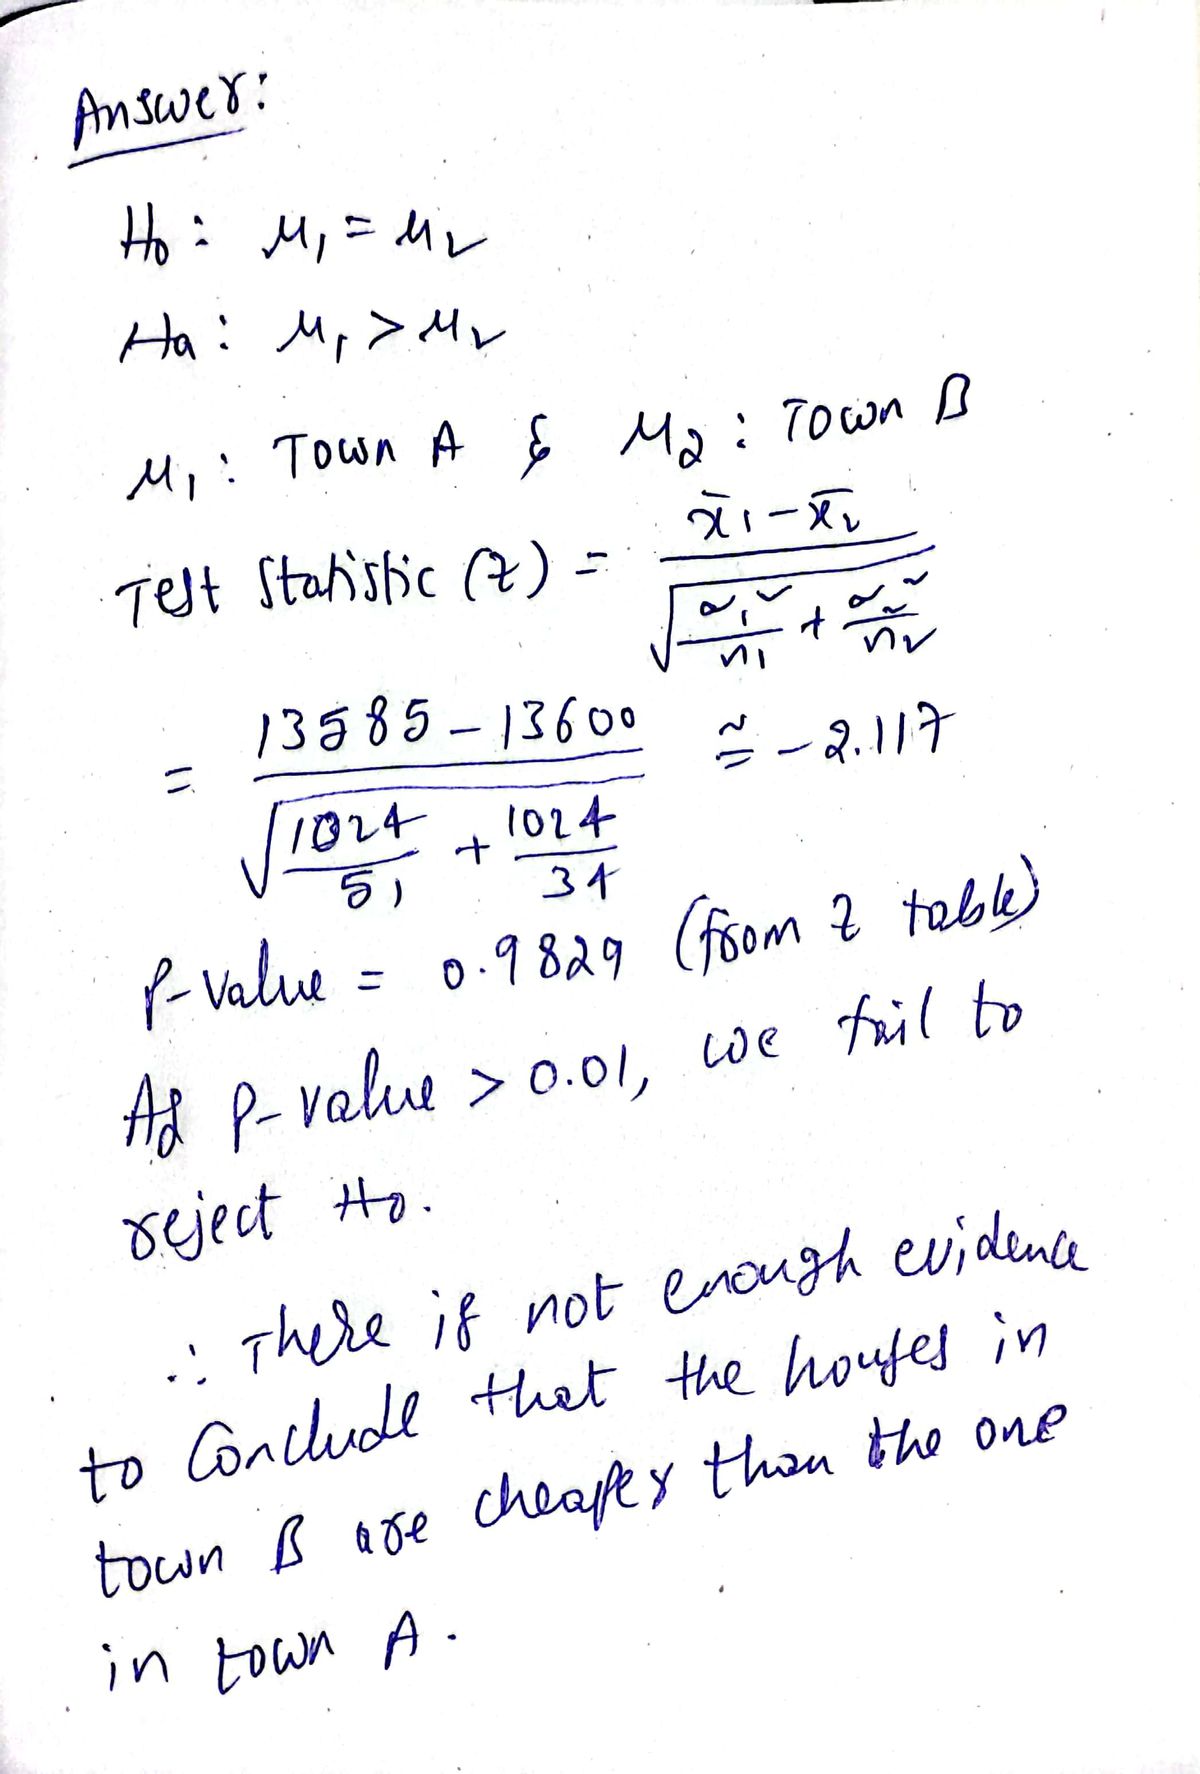 Answer:
H₀: μ₁ = μ₂
Ha: μ₁ > μ₂
μ₁: Town A & μ₂: Town B
Test Statistic (z) = (x̄₁ - x̄₂) / √(σ₁²/n₁ + σ₂²/n₂)
= (13585 - 13600) / √(1024/51 + 1024/34) ≅ -2.117
P-value = 0.9829 (from z table)
As P-value > 0.01, we fail to
reject H₀.
∴ There is not enough evidence
to Conclude that the houses in
town B are cheaper than the one
in town A.